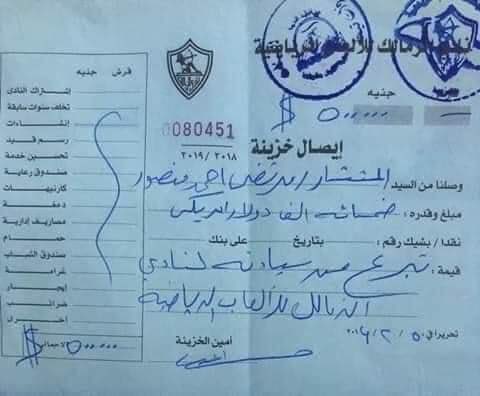 نادي الزمالك للألعاب الرياضية
قرش جنيه
جنيه
$ ٥٠٠،٠٠٠ —
0080451
٢٠١٩/٢٠١٨
إيصال خزينة
وصلنا من السيد المستشار / مرتضى احمد منصور
مبلغ وقدره : خمسمائة الف دولار امريكى
نقدا / بشيك رقم : بتاريخ على بنك
قيمة : تبرع من سيادته لنادي
الزمالك للألعاب الرياضية
أمين الخزينة
تحريرا في ٥ / ٢ /
إشتراك النادى
تخلف سنوات سابقة
إنشاءات
رسم قيد
تحسين خدمة
صندوق رعاية
كارنيهات
دمغة
مصاريف إدارية
حمام
صندوق الشباب
غرامة
إيجار
ضرائب
أخرى
الإجمالى ٥٠٠،٠٠٠ $